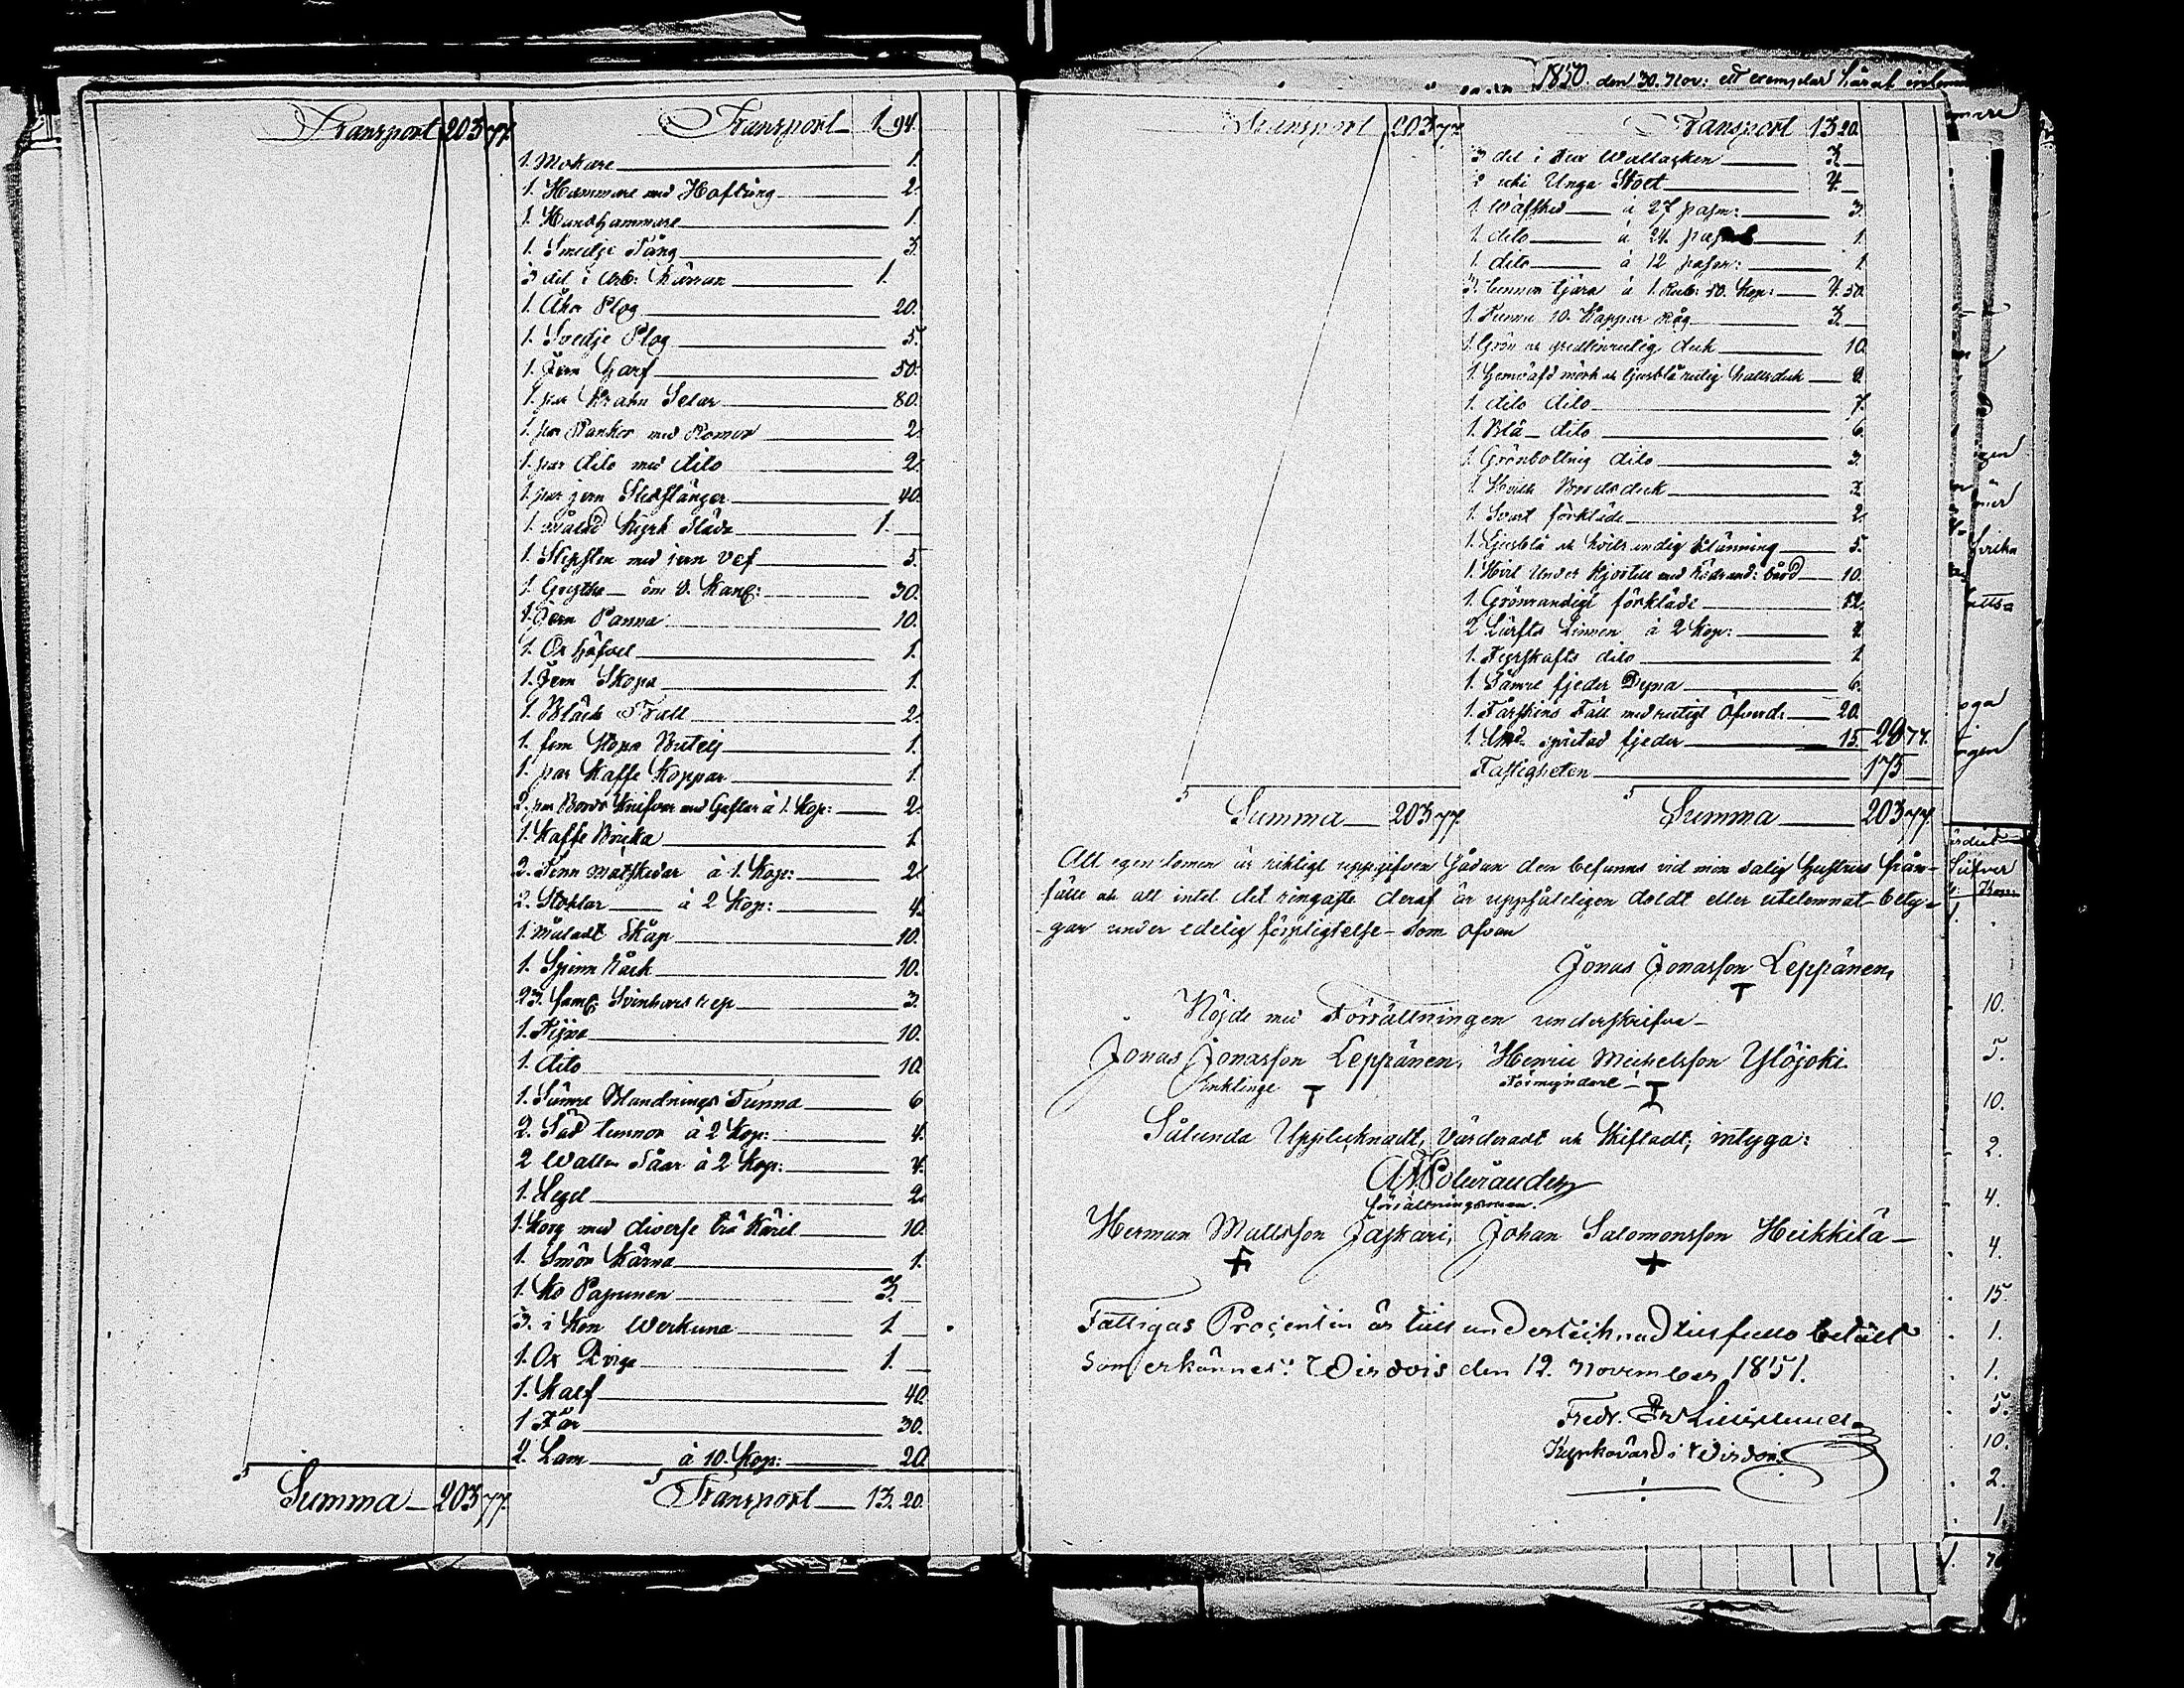 Transport 203 77.
Transport 1. 94.
1. Mokare 1.
1. Hammare med Hoftång 2.
1. Handhammare 1.
1. Smedje Tång 3.
3 del i Arb: Kärran 1.
1. Åker Plog 20.
1. Svedje Plog 5.
1. Jern Harf 50.
1. par Selar 80.
1. par Rankor med Romor 2.
1. par dito med dito 2.
1. par jern Sledstänger 40.
1. målad Kyrk Släde 1.
1. Slipsten med jern vef 5.
1. Gryta om Kann: 30.
1. Jern Panna 10.
1. Ox Höfvel 1.
1. Jern Skopa 1.
1. Bläck Tratt 2.
1. fem Stopa Butelj 1.
1. par Kaffe Koppar 1.
2. par Bords Knifvar med Gaflar à 1. Kop: 2.
1. Kaffe Bricka 1.
2. Tenn Matskedar à 1. Kop: 2.
2. Stolar à 2 Kop: 4.
1. Måladt Skåp 10.
1. Spinn Råck 10.
23. famn: Svinhars rep 3.
1. Tyna 10.
1. dito 10.
1. Sämre Blandnings Tunna 6
2. Säd tunnor à 2 Kop: 4.
2 Watten Såar à 2 Kop: 4.
1. Legel 2.
1. Korg med diverse trä Käril 10.
1. Smör Kärna 1.
1. Ko Papunen 3.
3. i Kon Werkuna 1.
1. Ox Qviga 1.
1. Kalf 40.
1 Får 30.
2. Lam à 10. Kop: 20
Summa 203 77.
Transport 13. 20.
1850. den 30. Nov: ett exemplar härat
Transport 203 77.
Transport 13 20.
3 del i Wallacken 3.
2 Unga Stoet 4.
1. Wäfsked à 27 pasm: 3.
1. dito à 24. 1.
1. dito à 12 pasm: 1.
3. tunnor tjära à 1. Rub: 50. Kop: 4. 50.
1. Tunna 10. Kappar Råg 3.
1. Grön och rutig duk 10.
1. Hemväfd mörk och ljusblå rutig halsduk
1. dito dito 7.
1. Blå dito 6.
1. Grönbottnig dito 3.
1. Hvitt Bordsduk
1. Svart förkläde 2.
1. Ljusblå och hvitrandig Klänning 5.
1. Hvit Under Kjortel med Rödrand: bård 10.
1. Grönrandigt förkläde 12.
2 Lärfts Linnen à 2 Kop: 4.
1. Fyrskafts dito 1.
1. Sämre fjeder Dyna 6.
1. Fårskins Fäll med rutigt Öfverd: 20.
1. spritad fjeder 15. 28 77.
Fastigheten 175
Summa 203 77.
Summa 203 77.
Att egendomen är riktigt uppgifven sådan den befanns vid min salig hustrus från-
fälle och att intet det ringaste deraf är uppsåteligen doldt eller utelemnat bety-
gar under edelig förpligtelse som ofvan
Jonas Jonasson Leppänen.
Nöjde med Förrättningen underskrifva
Jonas Jonasson Leppänen, Henric Michelsson Ylöjoki.
Enklinge Förmyndare
Sålunda Uppteknadt, Värderadt och Skiftadt, intyga:
förrättningsman.
Herman Mattsson Jaskari, Johan Salomonsson Heikkilä
Fattigas Procenten är till undertecknad till fullo betalt
som erkännes: Wirdois den 12. November 1851.
Fredr.
Kyrkovärd i Wirdois